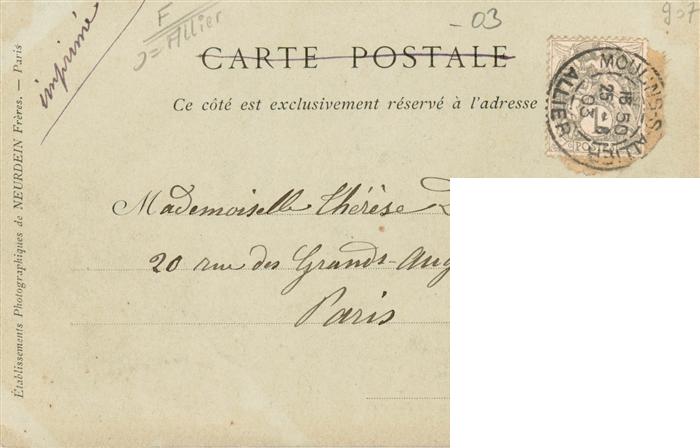 F
03 = Allier
-03
907
imprimé
CARTE POSTALE
Ce côté est exclusivement réservé à l'adresse
MOULINS-S-ALLIER
18 50
25
03
ALLIER
POSTES
Mademoiselle Thérèse
20 rue des Grands-Aug
Paris
Établissements Photographiques de NEURDEIN Frères. — Paris